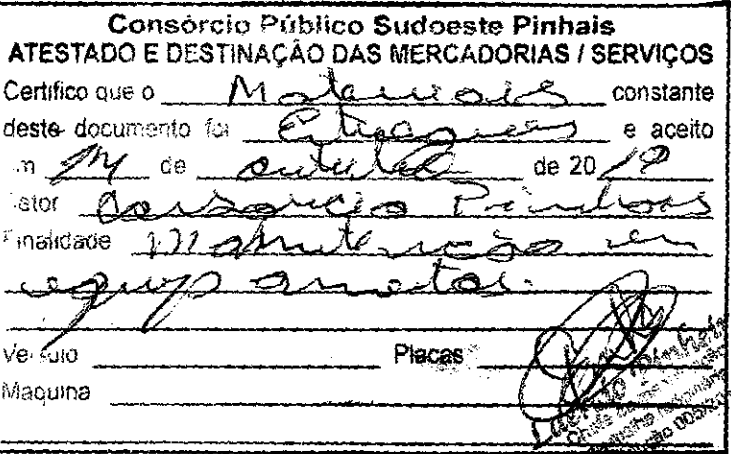 Consórcio Público Sudoeste Pinhais
ATESTADO E DESTINAÇÃO DAS MERCADORIAS / SERVIÇOS
Certifico que o Materiais constante
deste documento foi Entregues e aceito
de outubro de 20
Consórcio Pinhais
Finalidade Manutenção em
equipamentos.
Veículo Placas
Maquina